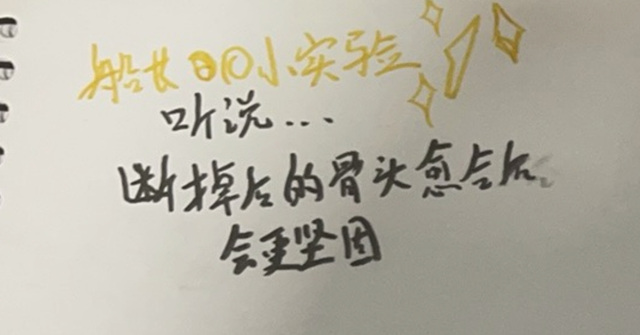 船长的小实验
听说...
断掉后的骨头愈合后
会更坚固